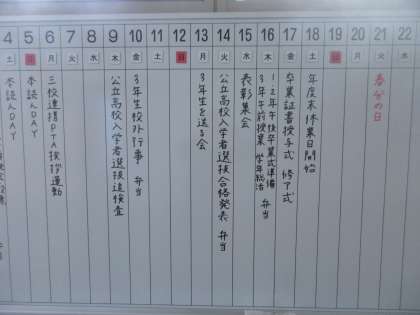 4 5 6 7 8 9 10 11 12 13 14 15 16 17 18 19 20 21 22
土 日 月 火 水 木 金 土 日 月 火 水 木 金 土 日 月 火 水
本読んDAY
本読んDAY
三校連携PTA挨拶運動
公立高校入学者選抜追検査
3年生校外行事 弁当
3年生を送る会
公立高校入学者選抜合格発表 弁当
表彰集会
1・2年午後卒業式準備
3年午前授業 学年総治 弁当
卒業証書授与式 修了式
年度末休業日開始
春分の日